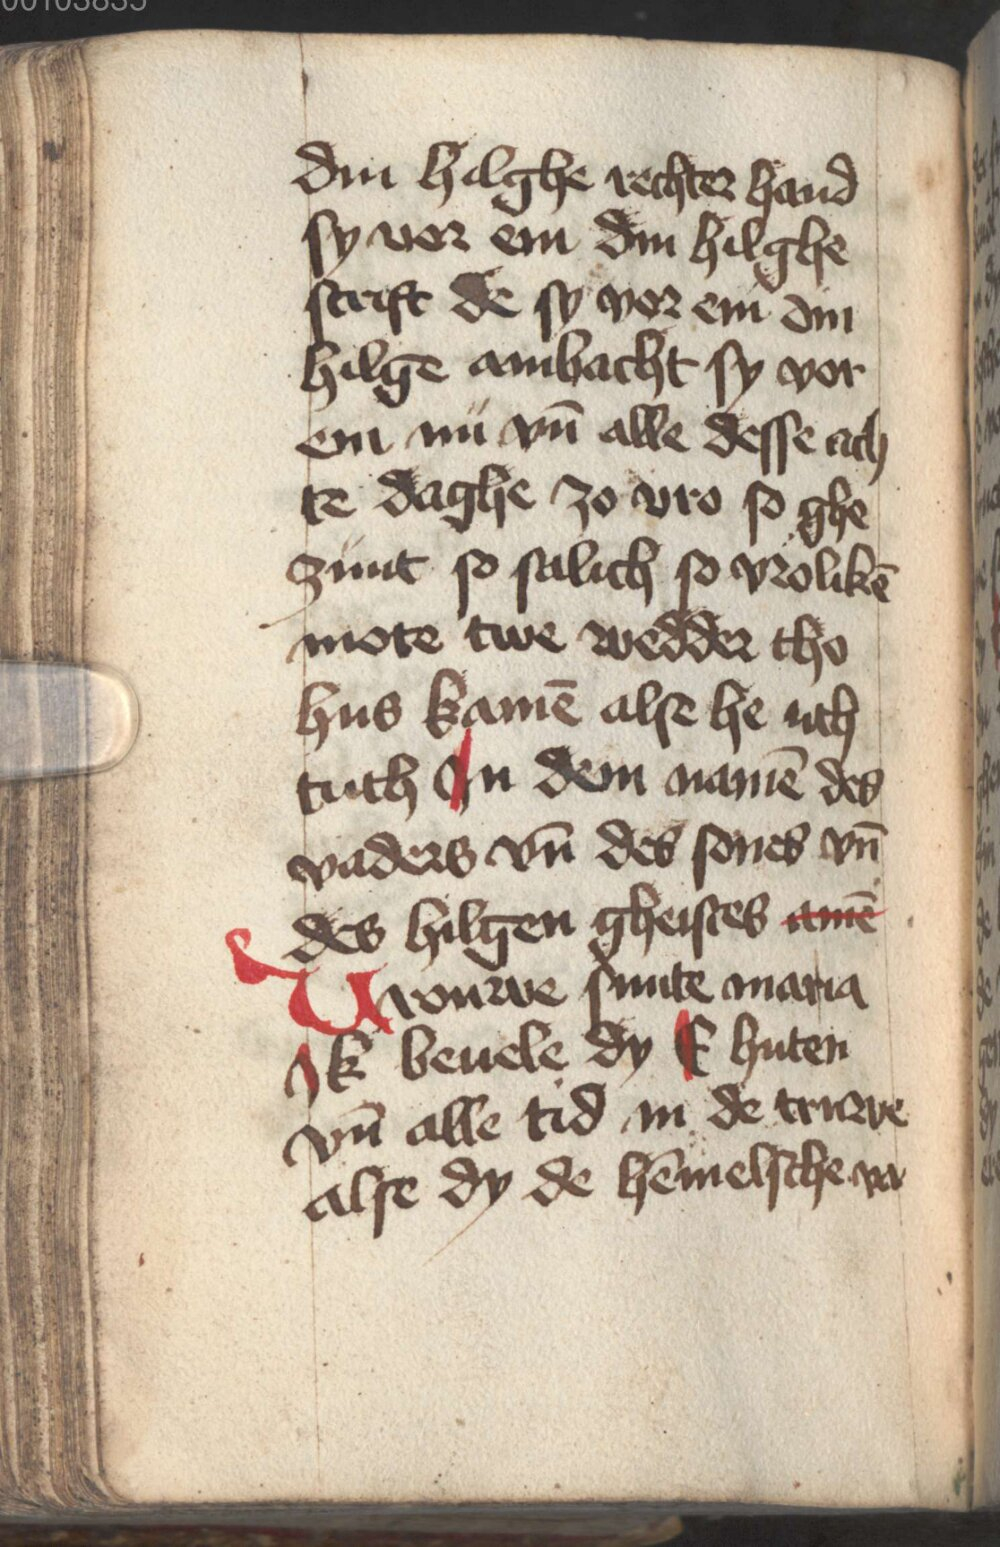 00103835
din hilghe rechter hand
sy vor em din hilghe
scrift de sy vor em din
hilgē ambacht sy vor
em nü vn̄ alle desse ach
te daghe zo vro so ghe
zunt so salich so vrolikē
mote twe wedder tho
hus kamē alse he uth
tuth In dem namē des
vaders vn̄ des sones vn̄
des hilgen gheistes amē
Vrouwe sunte maria
Ik beuele dy E huten
vn̄ alle tid in de truwe
alse dy de hēmelsche va